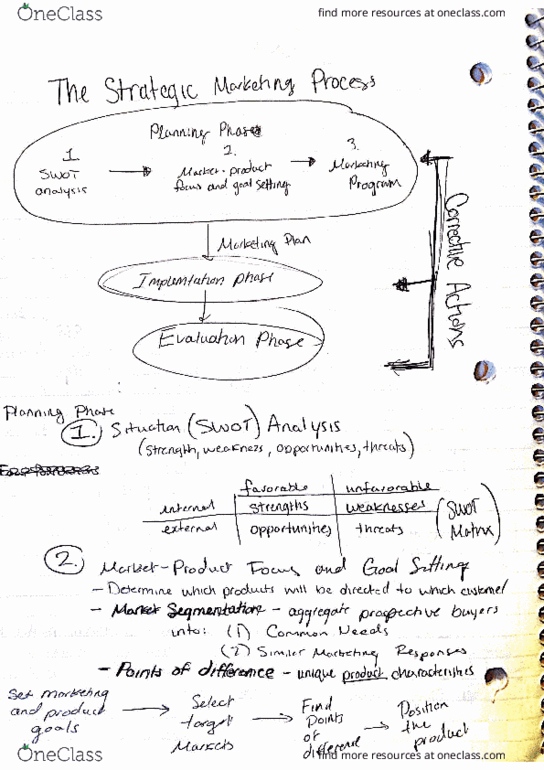 OneClass
find more resources at oneclass.com
The Strategic Marketing Process
Planning Phase
1. 2. 3.
SWOT analysis
Market-product focus and goal setting
Marketing Program
Corrective Actions
Marketing Plan
Implmentation phase
Evaluation Phase
Planning Phase
1. Situation (SWOT) Analysis
(strength, weakness, opportunities, threats)
favorable unfavorable
internal strengths weaknesses
external opportunities threats
(SWOT Matrix)
2. Market-Product Focus and Goal Setting
- Determine which products will be directed to which customer
- Market Segmentation - aggregate prospective buyers
into: (1) Common Needs
(2) Similar Marketing Responses
- Points of difference - unique product characteristics
Set marketing and product goals
Select target Markets
Find Points of difference
Position the product
OneClass
find more resources at oneclass.com